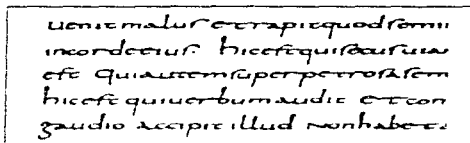 uenit malus et rapit quod semi
in corde eius. hic est qui secus uia
est Qui autem super petrosa sem
hic est qui uerbum audit et con
gaudio accipit illud non habet.